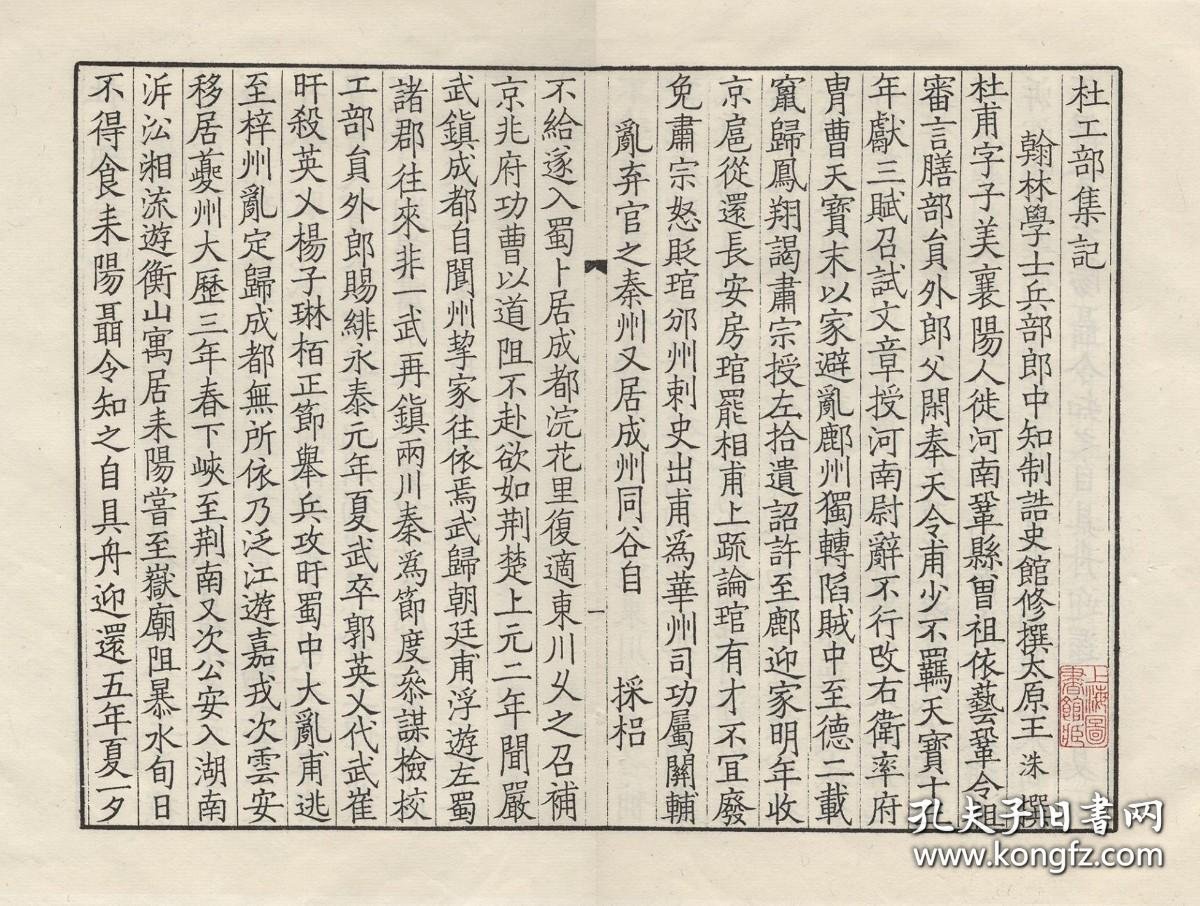 杜工部集記
翰林學士兵部郎中知制誥史館修撰太原王洙撰
杜甫字子美襄陽人徙河南鞏縣曽祖依藝鞏令祖
審言膳部貟外郎父閑奉天令甫少不羈天寶十三
年獻三賦召試文章授河南尉辭不行改右衛率府
胄曹天寶末以家避亂鄜州獨轉陷賊中至德二載
竄歸鳳翔謁肅宗授左拾遺詔許至鄜迎家明年收
京扈從還長安房琯罷相甫上䟽論琯有才不冝廢
免肅宗怒貶琯邠州刺史出甫爲華州司功屬關輔
亂弃官之秦州又居成州同谷自 採梠
一
不給遂入蜀卜居成都浣花里復適東川乆之召補
京兆府功曹以道阻不赴欲如荆楚上元二年聞嚴
武鎮成都自閬州挈家往依焉武歸朝廷甫浮遊左蜀
諸郡往來非一武再鎮兩川奏爲節度叅謀檢校
工部貟外郎賜緋永泰元年夏武卒郭英乂代武崔
旰殺英乂楊子琳栢正節舉兵攻旰蜀中大亂甫逃
至梓州亂定歸成都無所依乃泛江遊嘉戎次雲安
移居夔州大歷三年春下峽至荆南又次公安入湖南
泝㳂湘流遊衡山寓居耒陽嘗至嶽廟阻暴水旬日
不得食耒陽聶令知之自具舟迎還五年夏一夕
上海圖書館所
孔夫子旧书网
www.kongfz.com